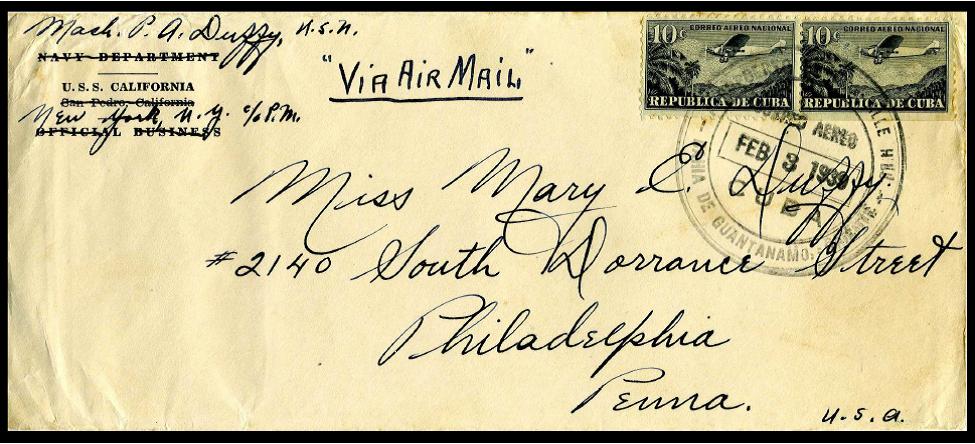 Mach. P. A. Duffy, U.S.N.
NAVY DEPARTMENT
U. S. S. CALIFORNIA
San Pedro, California
New York, N.Y. c/o P.M.
OFFICIAL BUSINESS
"VIA AIR MAIL"
10¢ CORREO AEREO NACIONAL
REPUBLICA DE CUBA
10¢ CORREO AEREO NACIONAL
REPUBLICA DE CUBA
AEREO
FEB 3 193
CUBA
BAHIA DE GUANTANAMO,
Miss Mary E. Duffy
#2140 South Dorrance Street
Philadelphia
Penna.
U.S.A.